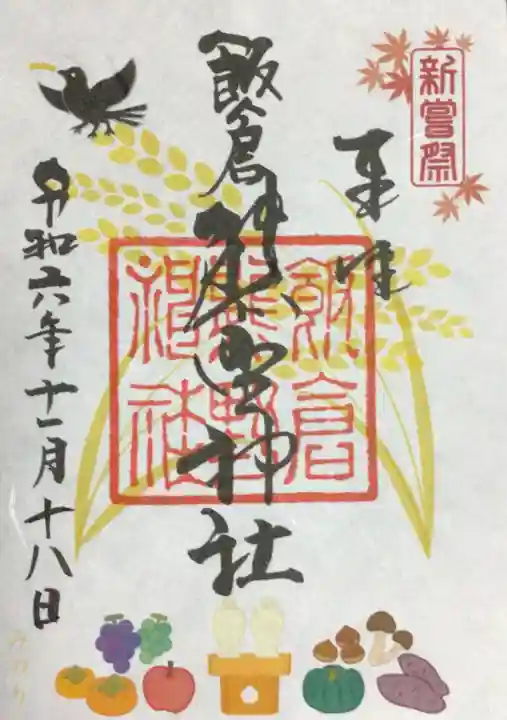 新嘗祭
奉拝
飯倉熊野神社
飯倉
熊野
神社
令和六年十一月十八日
みのり